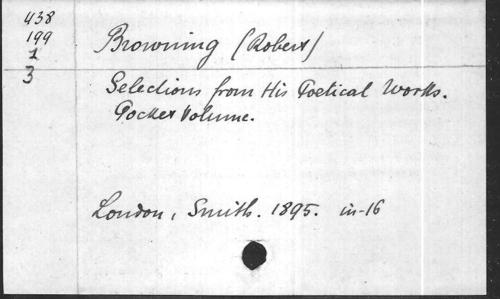 438
199
1
3
Browning (Robert)
Selections from His Poetical Works.
Pocket Volume.
London, Smith. 1895. in-16